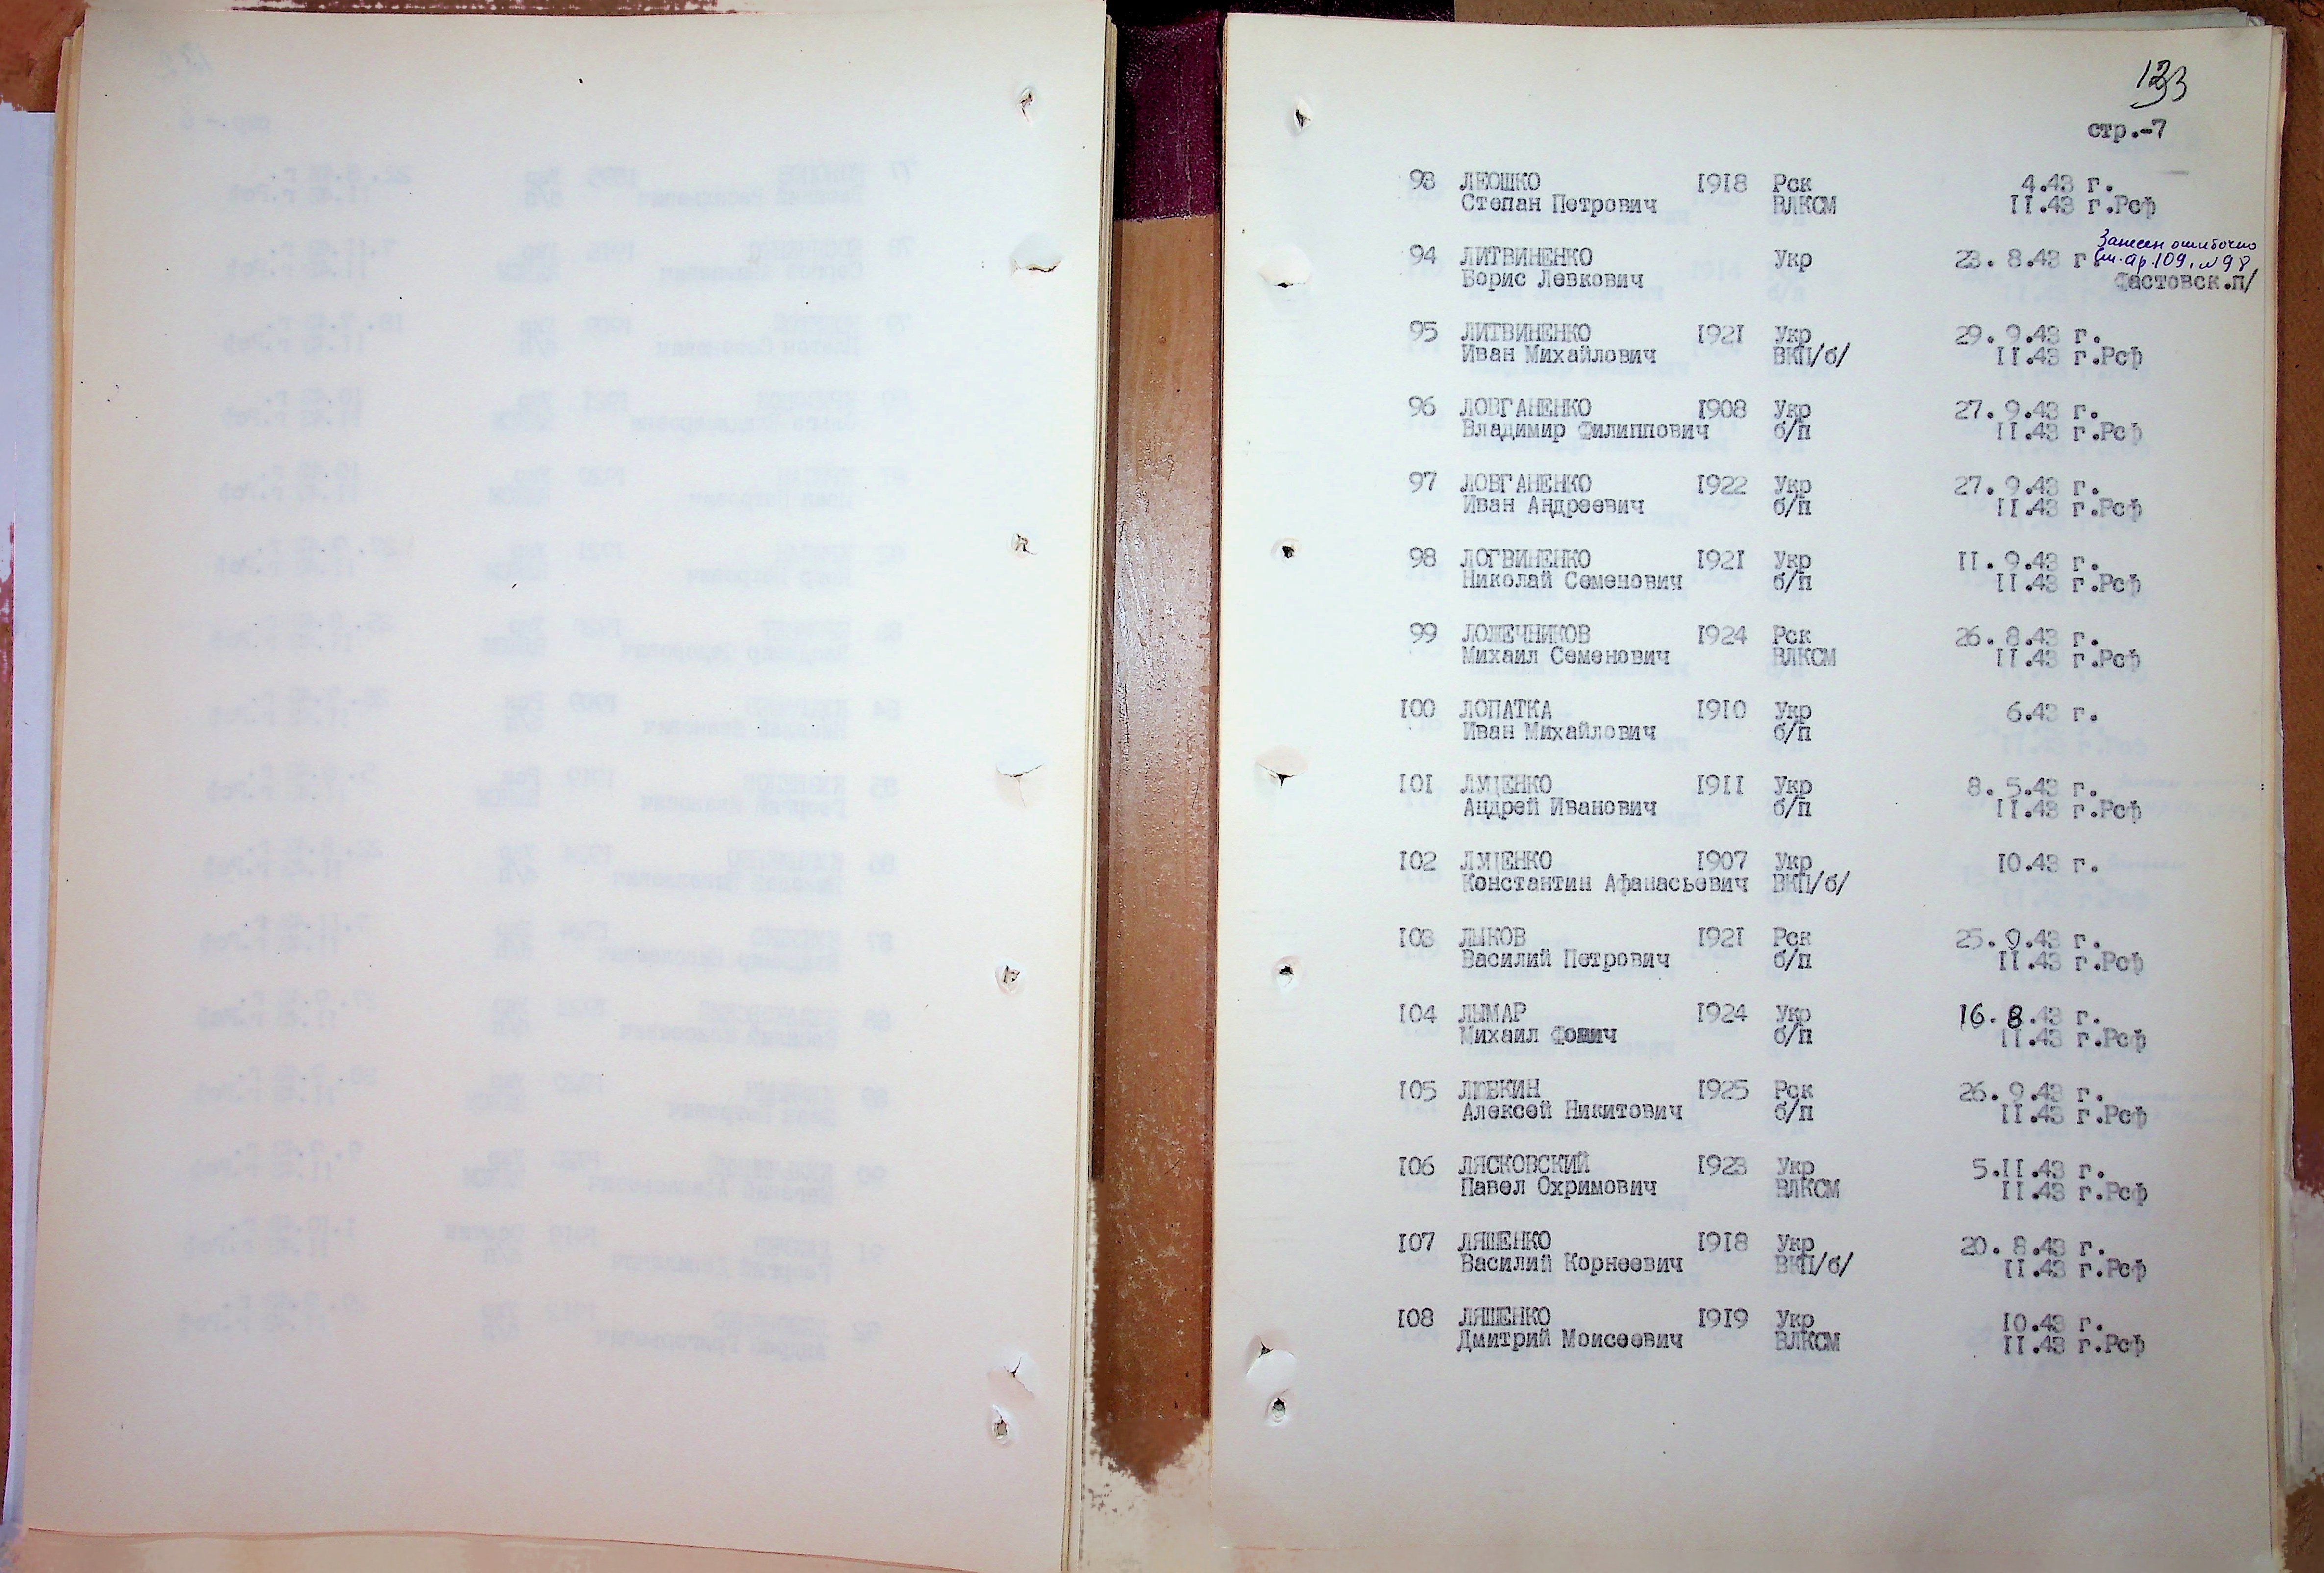 133
стр.-7
93 ЛЕОШКО 1918 Рск 4.43 г.
Степан Петрович ВЛКСМ II.43 г.Рсф
94 ЛИТВИНЕНКО Укр 23. 8.43 г. Занесен ошибочно
см. ар.109, №98
Борис Левкович Фастовск.п/
95 ЛИТВИНЕНКО 1921 Укр 29. 9.43 г.
Иван Михайлович ВКП/б/ II.43 г.Рсф
96 ЛОВГАНЕНКО 1908 Укр 27. 9.43 г.
Владимир Филиппович б/п II.43 г.Рсф
97 ЛОВГАНЕНКО 1922 Укр 27. 9.43 г.
Иван Андреевич б/п II.43 г.Рсф
98 ЛОГВИНЕНКО 1921 Укр II. 9.43 г.
Николай Семенович б/п II.43 г.Рсф
99 ЛОЖЕЧНИКОВ 1924 Рск 26. 8.43 г.
Михаил Семенович ВЛКСМ II.43 г.Рсф
100 ЛОПАТКА 1910 Укр 6.43 г.
Иван Михайлович б/п
101 ЛУЦЕНКО 1911 Укр 8. 5.43 г.
Андрей Иванович б/п II.43 г.Рсф
102 ЛУЦЕНКО 1907 Укр 10.43 г.
Константин Афанасьевич ВКП/б/
103 ЛЫКОВ 1921 Рск 25. 9.43 г.
Василий Петрович б/п II.43 г.Рсф
104 ЛЫМАР 1924 Укр 16. 8.43 г.
Михаил Фомич б/п II.43 г.Рсф
105 ЛЮБКИН 1925 Рск 26. 9.43 г.
Алексей Никитович б/п II.43 г.Рсф
106 ЛЯСКОВСКИЙ 1923 Укр 5.II.43 г.
Павел Охримович ВЛКСМ II.43 г.Рсф
107 ЛЯШЕНКО 1918 Укр 20. 8.43 г.
Василий Корнеевич ВКП/б/ II.43 г.Рсф
108 ЛЯШЕНКО 1919 Укр 10.43 г.
Дмитрий Моисеевич ВЛКСМ II.43 г.Рсф